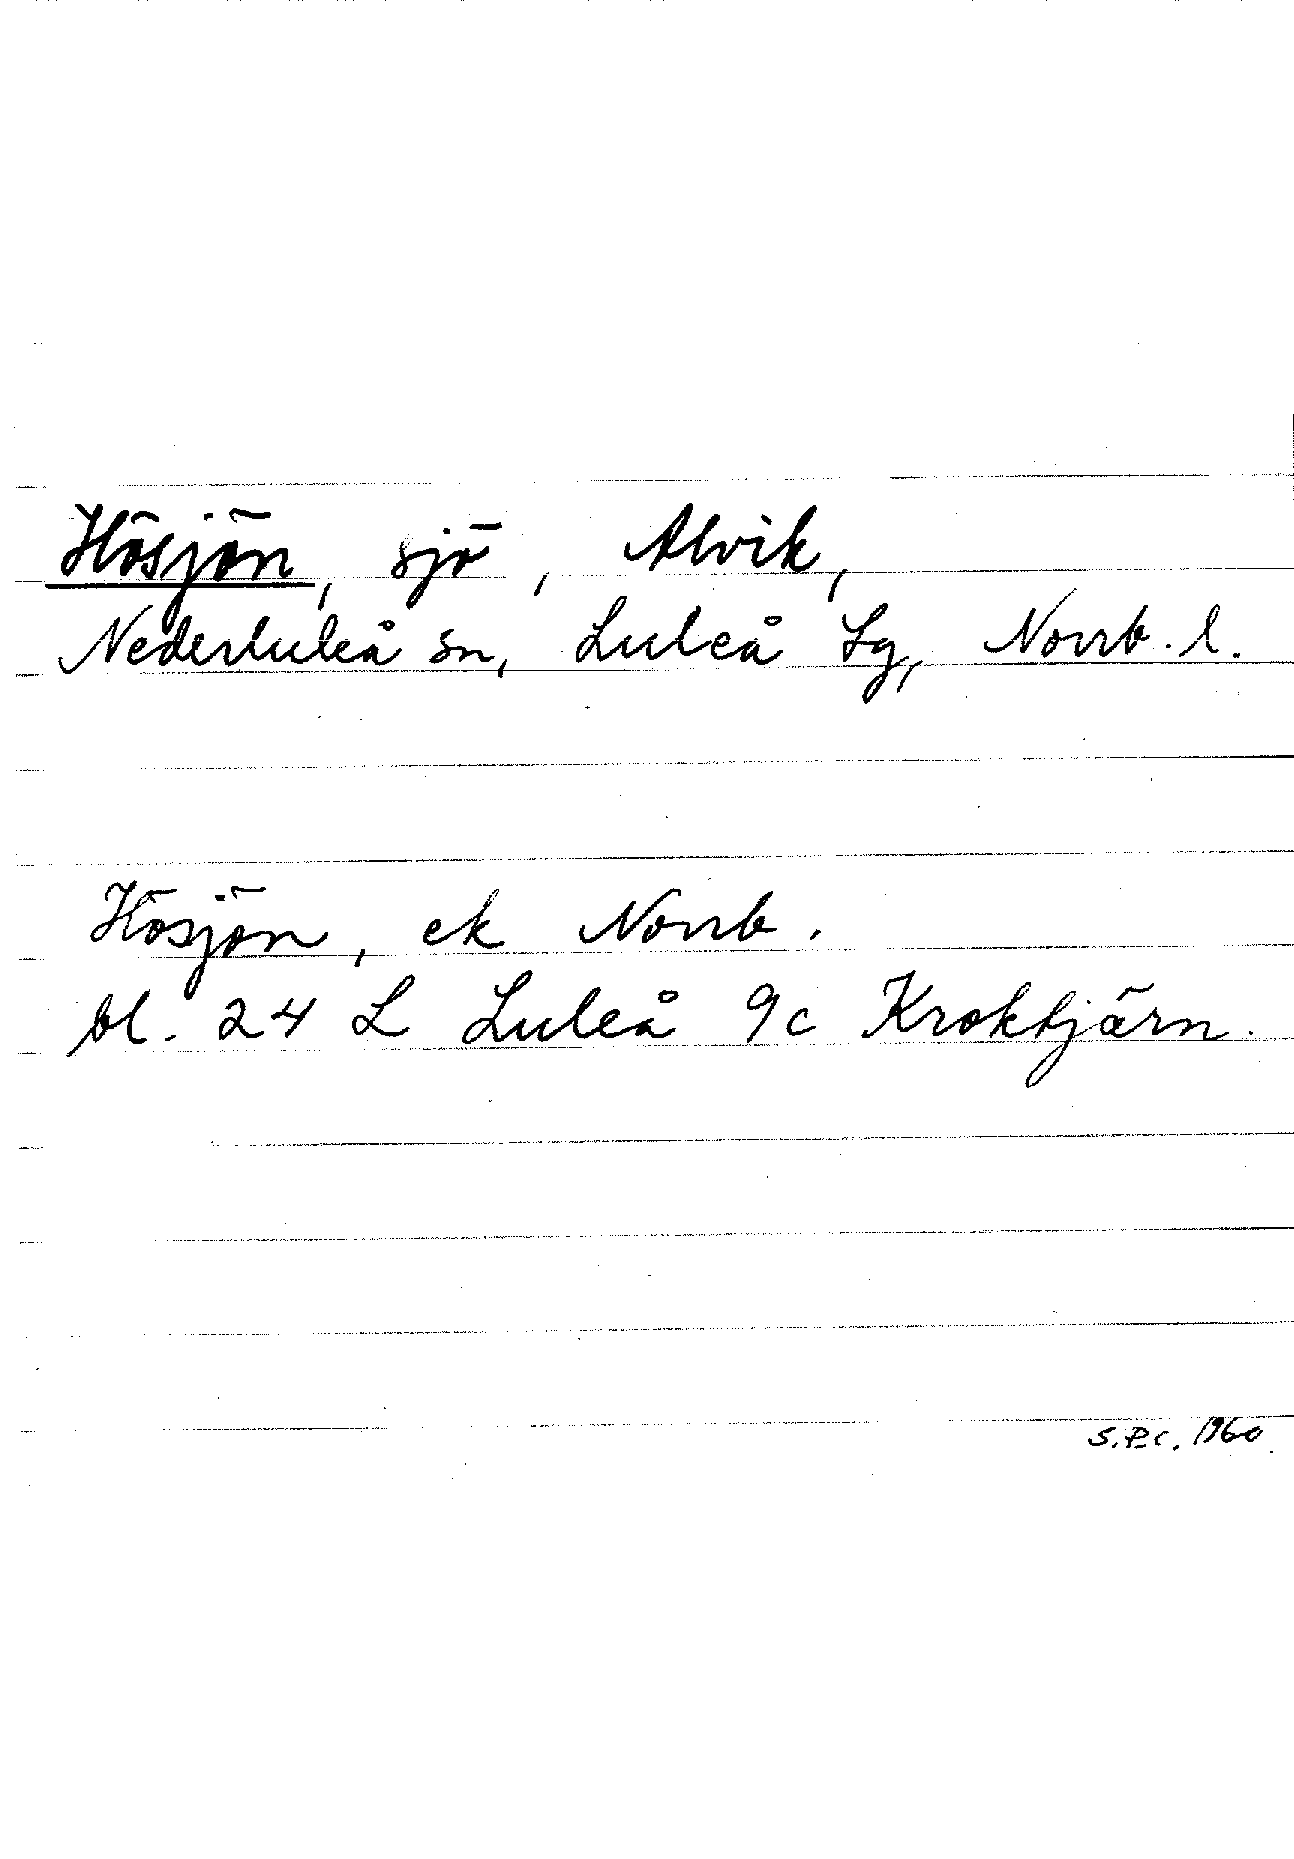 Hösjön, sjö, Alvik,
Nederluleå sn, Luleå tg, Norrb. l.
Hösjön, ek Norrb.
bl. 24 L Luleå 9c Kroktjärn.
S.P.C. 1960